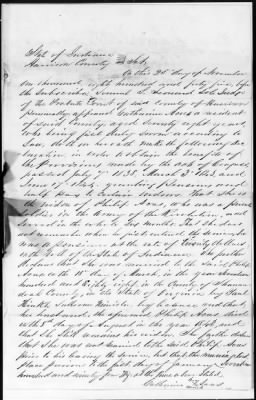 State of Indiana
Harrison County Sct.
On this 25th day of November
one thousand eight hundred and forty five, before
the Subscriber Samuel J. sole Judge
of the Probate Court of said county of Harrison
personally appeared Catharine Aous a resident
of said County aged Seventy eight years
who being first duly Sworn according to
Law, doth on her oath make the following dec
laration, in order to obtain the benefit of
the provision made by the act of Congress
passed July 7th 1838, March 3d 1843, and
June 17 1844, granting Pensions and
half Pay to certain widows. That she is
the widow of Philip Aous, who was a private
soldier in the Army of the Revolution, and
served in the whole Six Months. That she does
not remember when he first entered the service he
was a pensioner at the rate of Twenty dollars
on the roll of the State of Indiana. She further
declares that she was married to the said Philip
Aous on the 18th day of March in the year Seventeen
hundred and Eighty eight in the County of
County in the State of Virginia by
Lutheran Minister, by license, and that
her husband, the aforesaid Philip Aous died
on the 1st day of August in the year 1842, and
that she still remains his widow. She further declares
that she was not married to the said Philip Aous
prior to his leaving the service, but that the marriage took
place previous to the first day of January, Seventeen
hundred and ninety four Viz. at the time above stated.
Catharine Aous